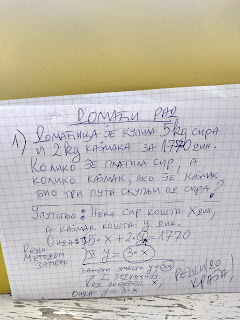 ДОМАЋИ РАД
1) ДОМАЋИЦА ЈЕ КУПИЛА 5kg СИРА
И 2kg КАЈМАКА ЗА 1770 ДИН.
КОЛИКО ЈЕ ПЛАТИЛА СИР, А
КОЛИКО КАЈМАК, АКО ЈЕ КАЈМАК
БИО ТРИ ПУТА СКУПЉИ ОД СИРА?
УПУТСТВО: НЕКА СИР КОШТА X ДИН,
А КАЈМАК КОШТА Y ДИН.
ОНДА: I 5·X + 2·Y = 1770
РЕШИ МЕТОДОМ ЗАМЕНЕ
II Y = 3·X
X
ОНДА Y = 3·X
РЕШИ ДО КРАЈА!